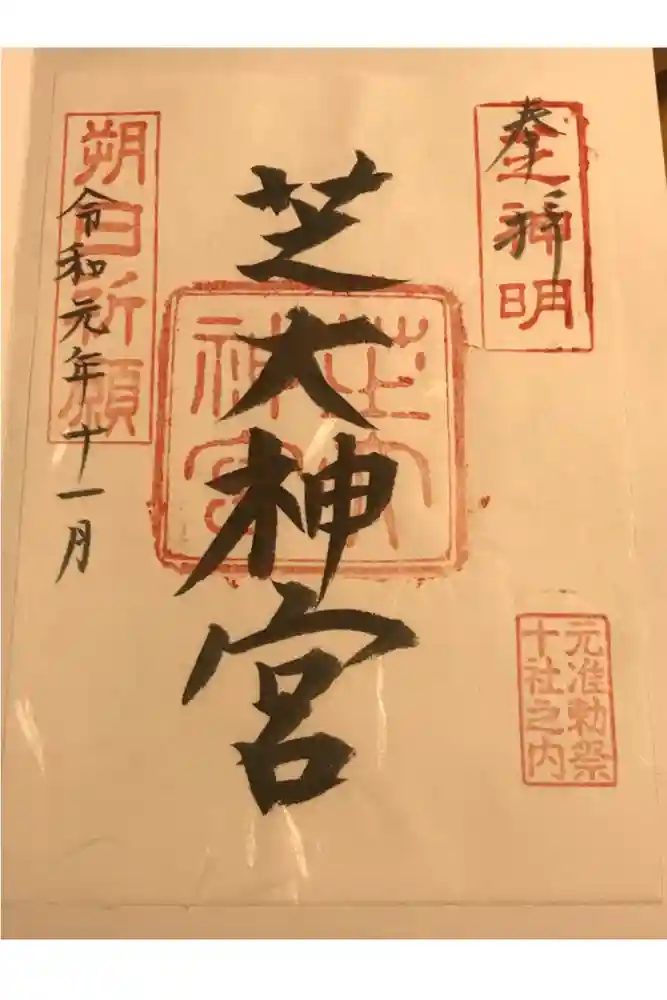 奉拝
芝神明
芝大神宮
芝大
神宮
元准勅祭
十社之内
朔日祈願
令和元年十一月